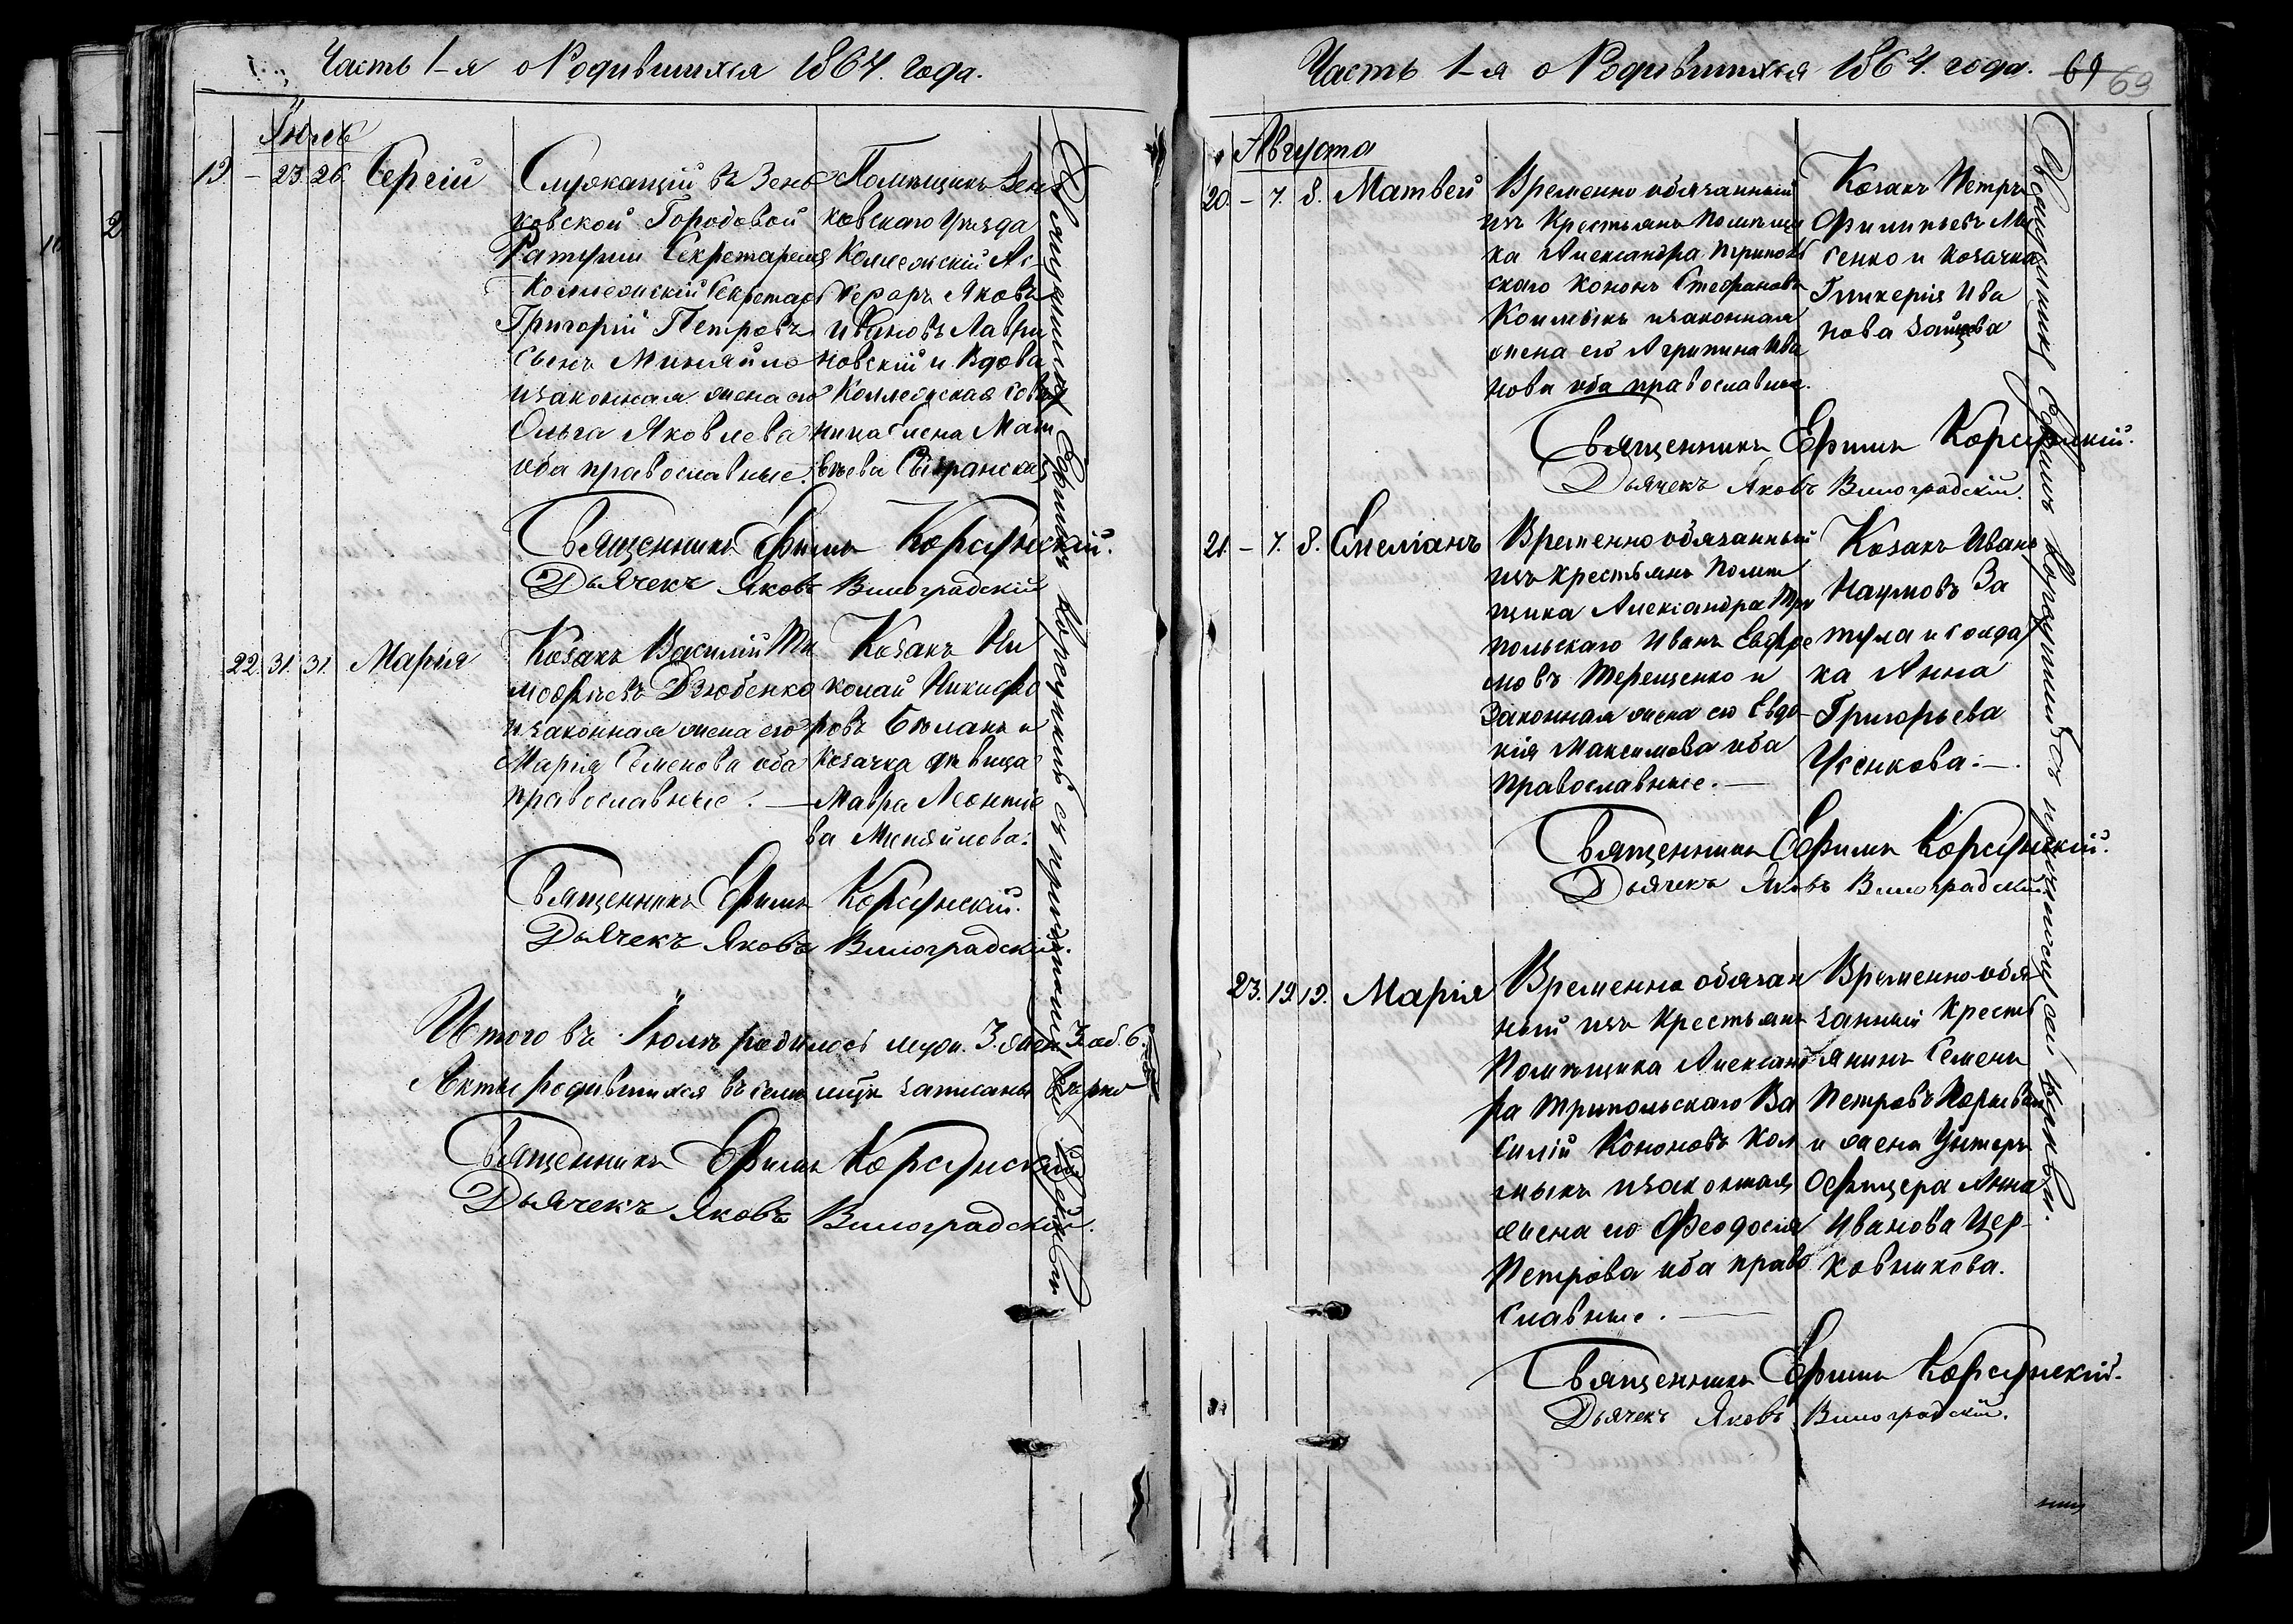 Часть 1-я о Родившихся 1864. года.
Іюль
19. – 23. 26. Сергій
Служащій въ Зень
ковской Городовой
Ратуши Секретаремъ
Коллежскій Секретарь
Григорій Петровъ
сынъ Миняйло
и законная жена его
Ольга Яковлева
оба православные.
Помѣщикъ Зень
ковскаго Уѣзда
Коллежскій Ас-
сесоръ Яковъ
Ивановъ Лаври
новскій и Вдова
Коллежская совѣт
ница Елена Мат
вѣева
Священникъ Ефимъ Корсунскій.
Дьячекъ Яковъ Виноградскій
22. 31. 31. Марія
Козакъ Василій Ти
мофѣевъ Дзюбенко
и законная жена его
Марія Семенова оба
православные. —
Козакъ Ни
колай Никифо
ровъ Бѣланъ и
Козачка дѣвица
Мавра Леонтіе
ва Миняйлова.
Священникъ Ефимъ Корсунскій.
Дьячекъ Яковъ Виноградскій.
Итого въ Іюлѣ родилось муж. 3. жен. 3. об. 6.
Акты родившихся въ семъ мцѣ записаны вѣрно
Священникъ Ефимъ Корсунскій
Дьячекъ Яковъ Виноградскій.
Священникъ Ефимъ Корсунскій съ причтомъ
Часть 1-я о Родившихся 1864. года. 69 69
Августа
20. – 7. 8. Матвей
Временно обязанный
изъ Крестьянъ Помѣщи
ка Александра Триполь
скаго Кононъ Стефановъ
Колмыкъ и законная
жена его Агрипина Ива
нова оба православные.
Козакъ Петръ
Филипьевъ Лы
сенко и козачка
Гликерія Ива
нова Зайцева
Священникъ Ефимъ Корсунскій.
Дьячекъ Яковъ Виноградскій.
21. – 7. 8. Емеліанъ
Временно обязанный
изъ крестьянъ Помѣ
щика Александра Три
польскаго Иванъ Евфре
мовъ Терещенко и
Законная жена его Евдо-
кія Максимова оба
православные. —
Козакъ Иванъ
Наумовъ За
тула и солда
ка Анна
Григорьева
Усенкова. —
Священникъ Ефимъ Корсунскій.
Дьячекъ Яковъ Виноградскій.
23. 19 19. Марія
Временно обязан
ный изъ Крестьянъ
Помѣщика Александ
ра Трипольскаго Ва
силій Кононовъ Кол
мыкъ и законная
жена его Феодосія
Петрова оба право
славные. —
Временно обя
занный Кресть
янинъ Семенъ
Петровъ
и жена Унтеръ
Офицера Анна
Иванова Цер-
ковникова.
Священникъ Ефимъ Корсунскій.
Дьячекъ Яковъ Виноградскій.
Священникъ Ефимъ Корсунскій съ причтомъ